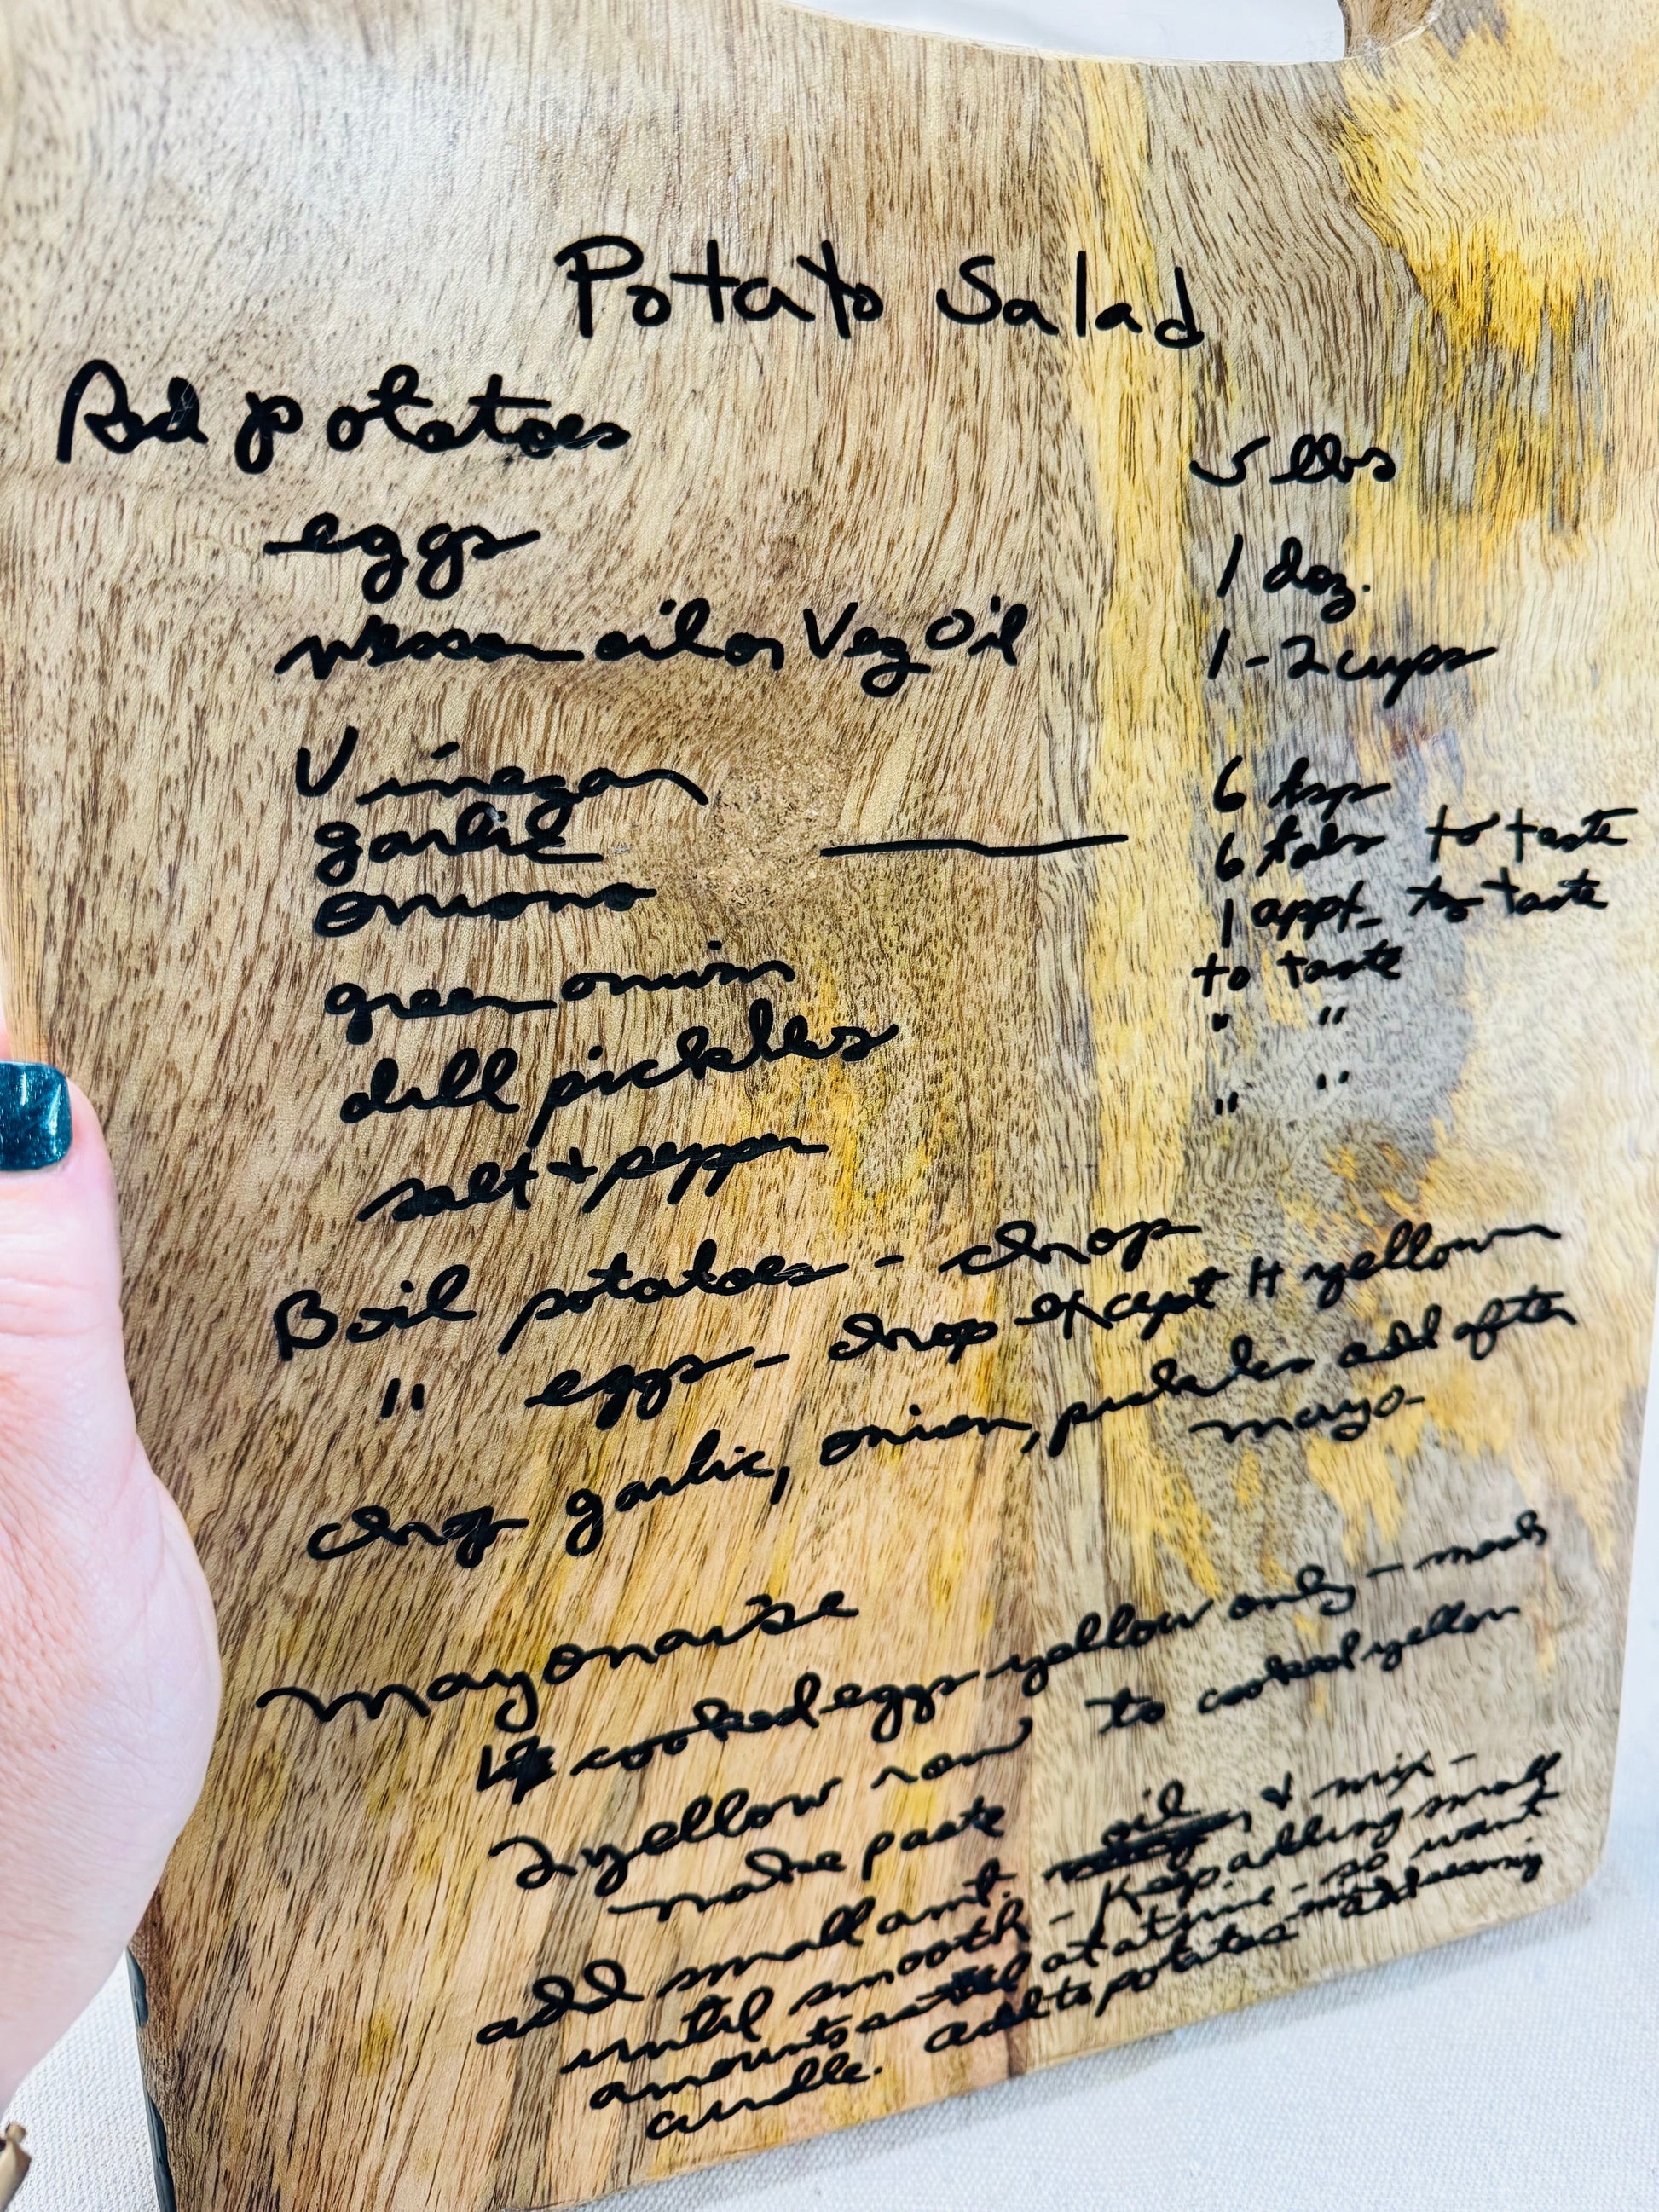 Potato Salad
Red potatoes 5 lbs
eggs 1 doz.
Wesson oil or Veg Oil 1-2 cups
Vinegar 6 tsp
garlic — 6 tabs to taste
onions 1 appt- to taste
green onions to taste
dill pickles " "
salt & pepper " "
Boil potatoes - chop
" eggs - chop except 4 yellow
chop garlic, onion, pickles add after
mayo-
Mayonaise
4 cooked eggs yellow only - mash
2 yellow raw to cooked yellow
make paste
add small amt. oil & mix -
until smooth - Keep adding small
amounts at a time - so want
curdle. add to potatoes add seasoning